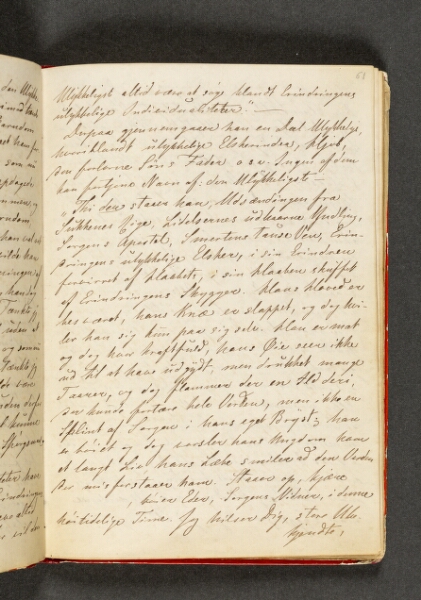 61
Ulykkeligste altid være at søge blandt Erindringens
ulykkelige Individualiteter." —
Derpaa gjennemgaaer han en Del Ulykkelige,
hvoriblandt ulykkelige Elskerinder, Hjob,
den forlorne Søns Fader o.s.v. Ingen af dem
kan fortjene Navn af: den Ulykkeligste —
"Thi der staaer han, Udsendingen fra
Sukkenes Rige, Lidelsernes udkaarne Yndling,
Sorgens Apostel, Smertens tause Ven, Erin-
dringens ulykkelige Elsker, i sin Erindren
forvirret af Haabets, i sin Haaben skuffet
af Erindringens Skygger. Hans Hoved er
besværet, hans Knæ er slappet, og dog hvi-
ler han sig kun paa sig selv. Han er mat
og dog hvor kraftfuld, hans Øie seer ikke
ud til at have udgydt, men drukket mange
Taarer, og dog flammer der en Ild deri,
der kunde fortære hele Verden, men ikke en
Splint af Sorgen i hans eget Bryst; han
er bøiet og dog varsler hans Ungdom ham
et langt Liv, hans Læbe smiler ad den Verden
der misforstaaer ham. Staaer op, kjære
bøier Eder, Sorgens Vidner, i denne
høitidelige Time. Jeg hilser Dig, store Ube-
kjendte,